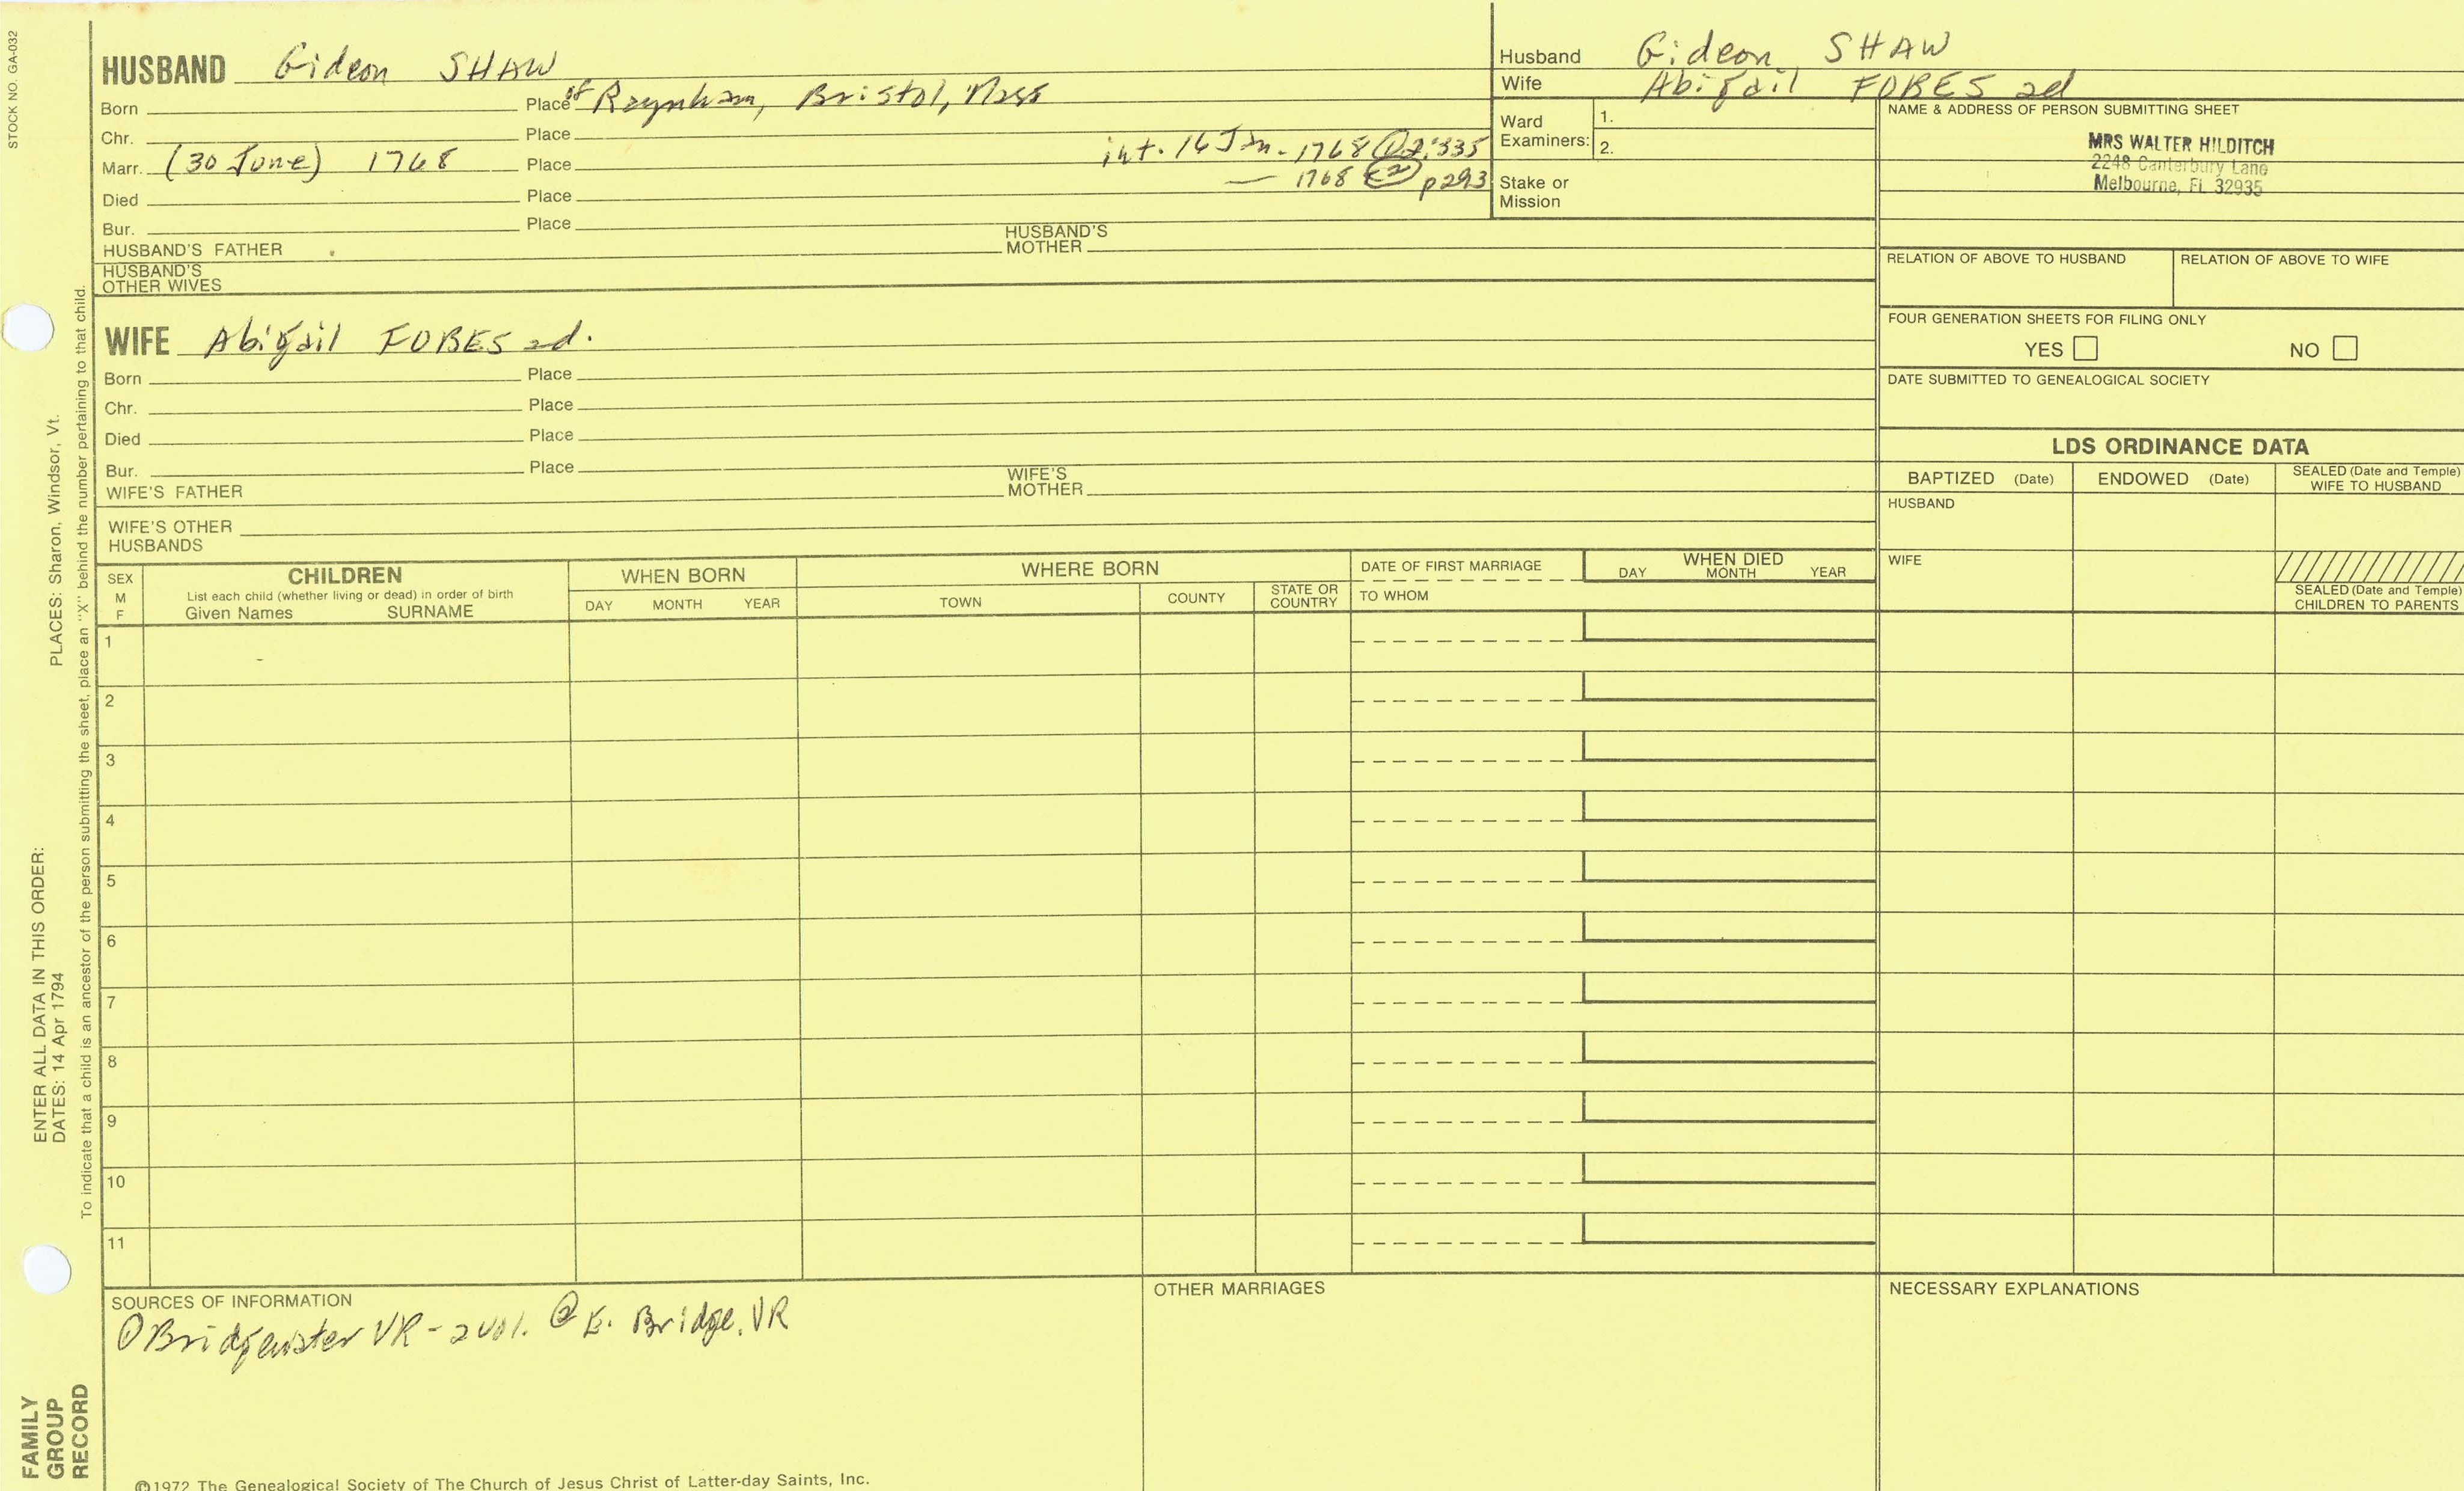 STOCK NO. GA-032
HUSBAND Gideon SHAW
Born Place of Raynham, Bristol, Mass
Chr. Place
Marr. (30 June) 1768 Place int. 16 Jan. 1768 ① 2:335
— 1768 ② p293
Died Place
Bur. Place
HUSBAND'S FATHER HUSBAND'S MOTHER
HUSBAND'S OTHER WIVES
WIFE Abigail FOBES 2d.
Born Place
Chr. Place
Died Place
Bur. Place
WIFE'S FATHER WIFE'S MOTHER
WIFE'S OTHER HUSBANDS
Husband Gideon SHAW
Wife Abigail FOBES 2d
Ward Examiners: 1.
2.
Stake or Mission
NAME & ADDRESS OF PERSON SUBMITTING SHEET
MRS WALTER HILDITCH
2248 Canterbury Lane
Melbourne, FL 32935
RELATION OF ABOVE TO HUSBAND RELATION OF ABOVE TO WIFE
FOUR GENERATION SHEETS FOR FILING ONLY
YES NO
DATE SUBMITTED TO GENEALOGICAL SOCIETY
LDS ORDINANCE DATA
BAPTIZED (Date) ENDOWED (Date) SEALED (Date and Temple) WIFE TO HUSBAND
HUSBAND
WIFE
SEALED (Date and Temple) CHILDREN TO PARENTS
SEX M F
CHILDREN
List each child (whether living or dead) in order of birth
Given Names SURNAME
WHEN BORN
DAY MONTH YEAR
WHERE BORN
TOWN COUNTY STATE OR COUNTRY
DATE OF FIRST MARRIAGE
TO WHOM
WHEN DIED
DAY MONTH YEAR
1
2
3
4
5
6
7
8
9
10
11
SOURCES OF INFORMATION
① Bridgewater VR - 2 vol. ② E. Bridge. VR
OTHER MARRIAGES
NECESSARY EXPLANATIONS
©1972 The Genealogical Society of The Church of Jesus Christ of Latter-day Saints, Inc.
ENTER ALL DATA IN THIS ORDER:
DATES: 14 Apr 1794 PLACES: Sharon, Windsor, Vt.
To indicate that a child is an ancestor of the person submitting the sheet, place an "X" behind the number pertaining to that child.
FAMILY
GROUP
RECORD